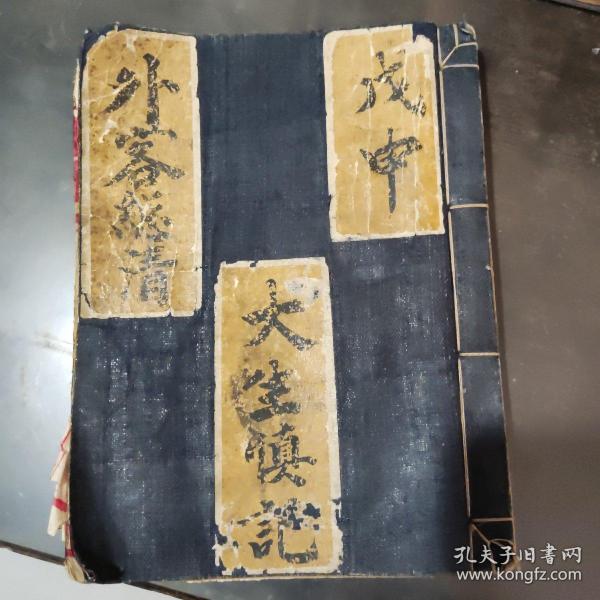 戊申
大生慎記
外客總清
孔夫子旧書网
www.kongfz.com